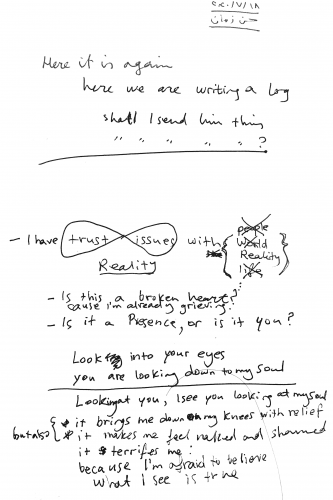 Here it is again
here we are writing a log
shall I send him this
" " " " " ?
- I have trust issues with
people
World
Reality
life
Reality
- Is this a broken heart?
cause I'm already grieving.
- Is it a Presence, or is it you?
Look into your eyes
you are looking down to my soul
Looking at you, I see you looking at my soul
it brings me down on my knees with relief
but also it makes me feel naked and shamed
it terrifies me
because I'm afraid to believe
what I see is true